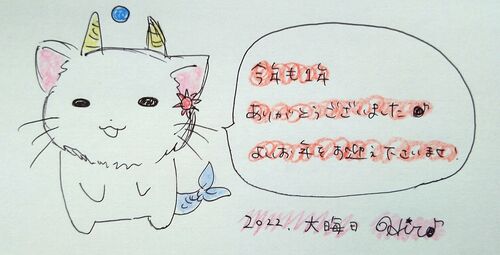 今年も1年
ありがとうございました♪
よいお年をお迎え下さいませ
2022.大晦日